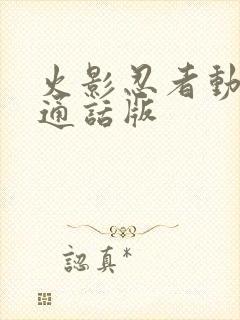 火影忍者動
通話版
認真*